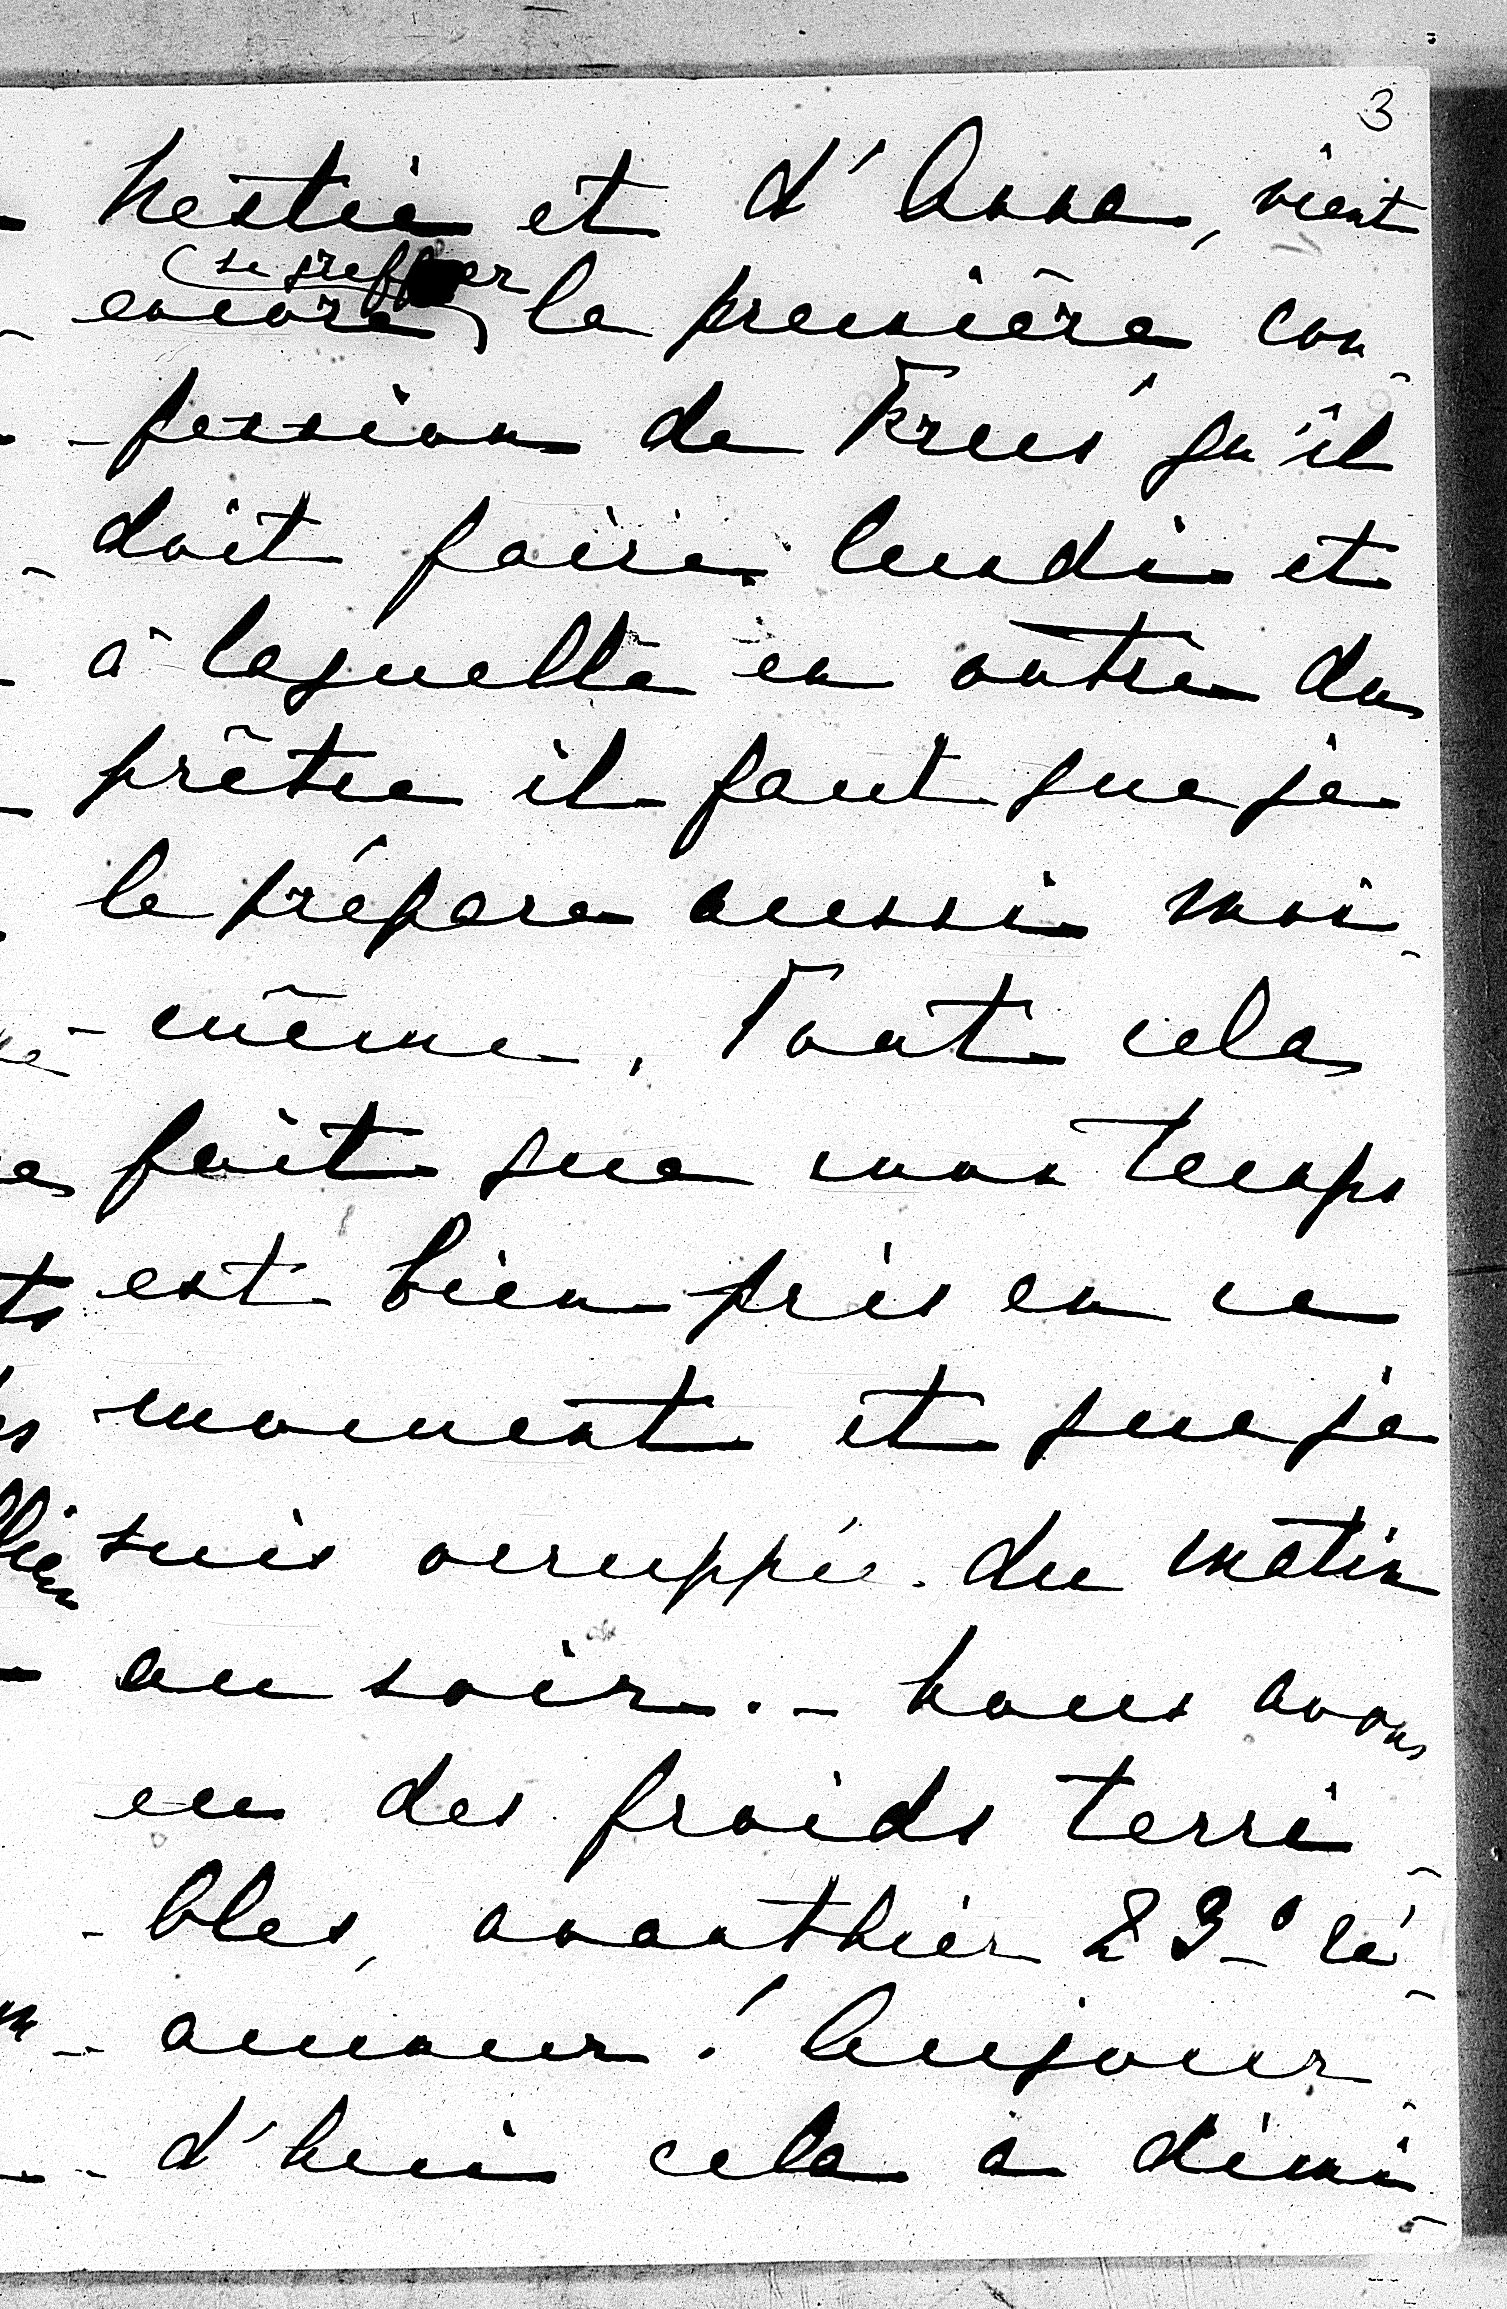 3
Hestie et d'Anna, vient
(se greffer
encore) la première con-
-fession de Krees qu'il
doit faire lundi et
à laquelle en outre du
prêtre il faut que je
le prépare aussi moi-
-même. Tout cela
fait que mon temps
est bien pris en ce
moment et que je
suis occuppée du matin
au soir. - Nous avons
eu des froids terri-
-bles, avanthier 23° ré-
-aumur! Aujour-
-d'hui cela a dimi-